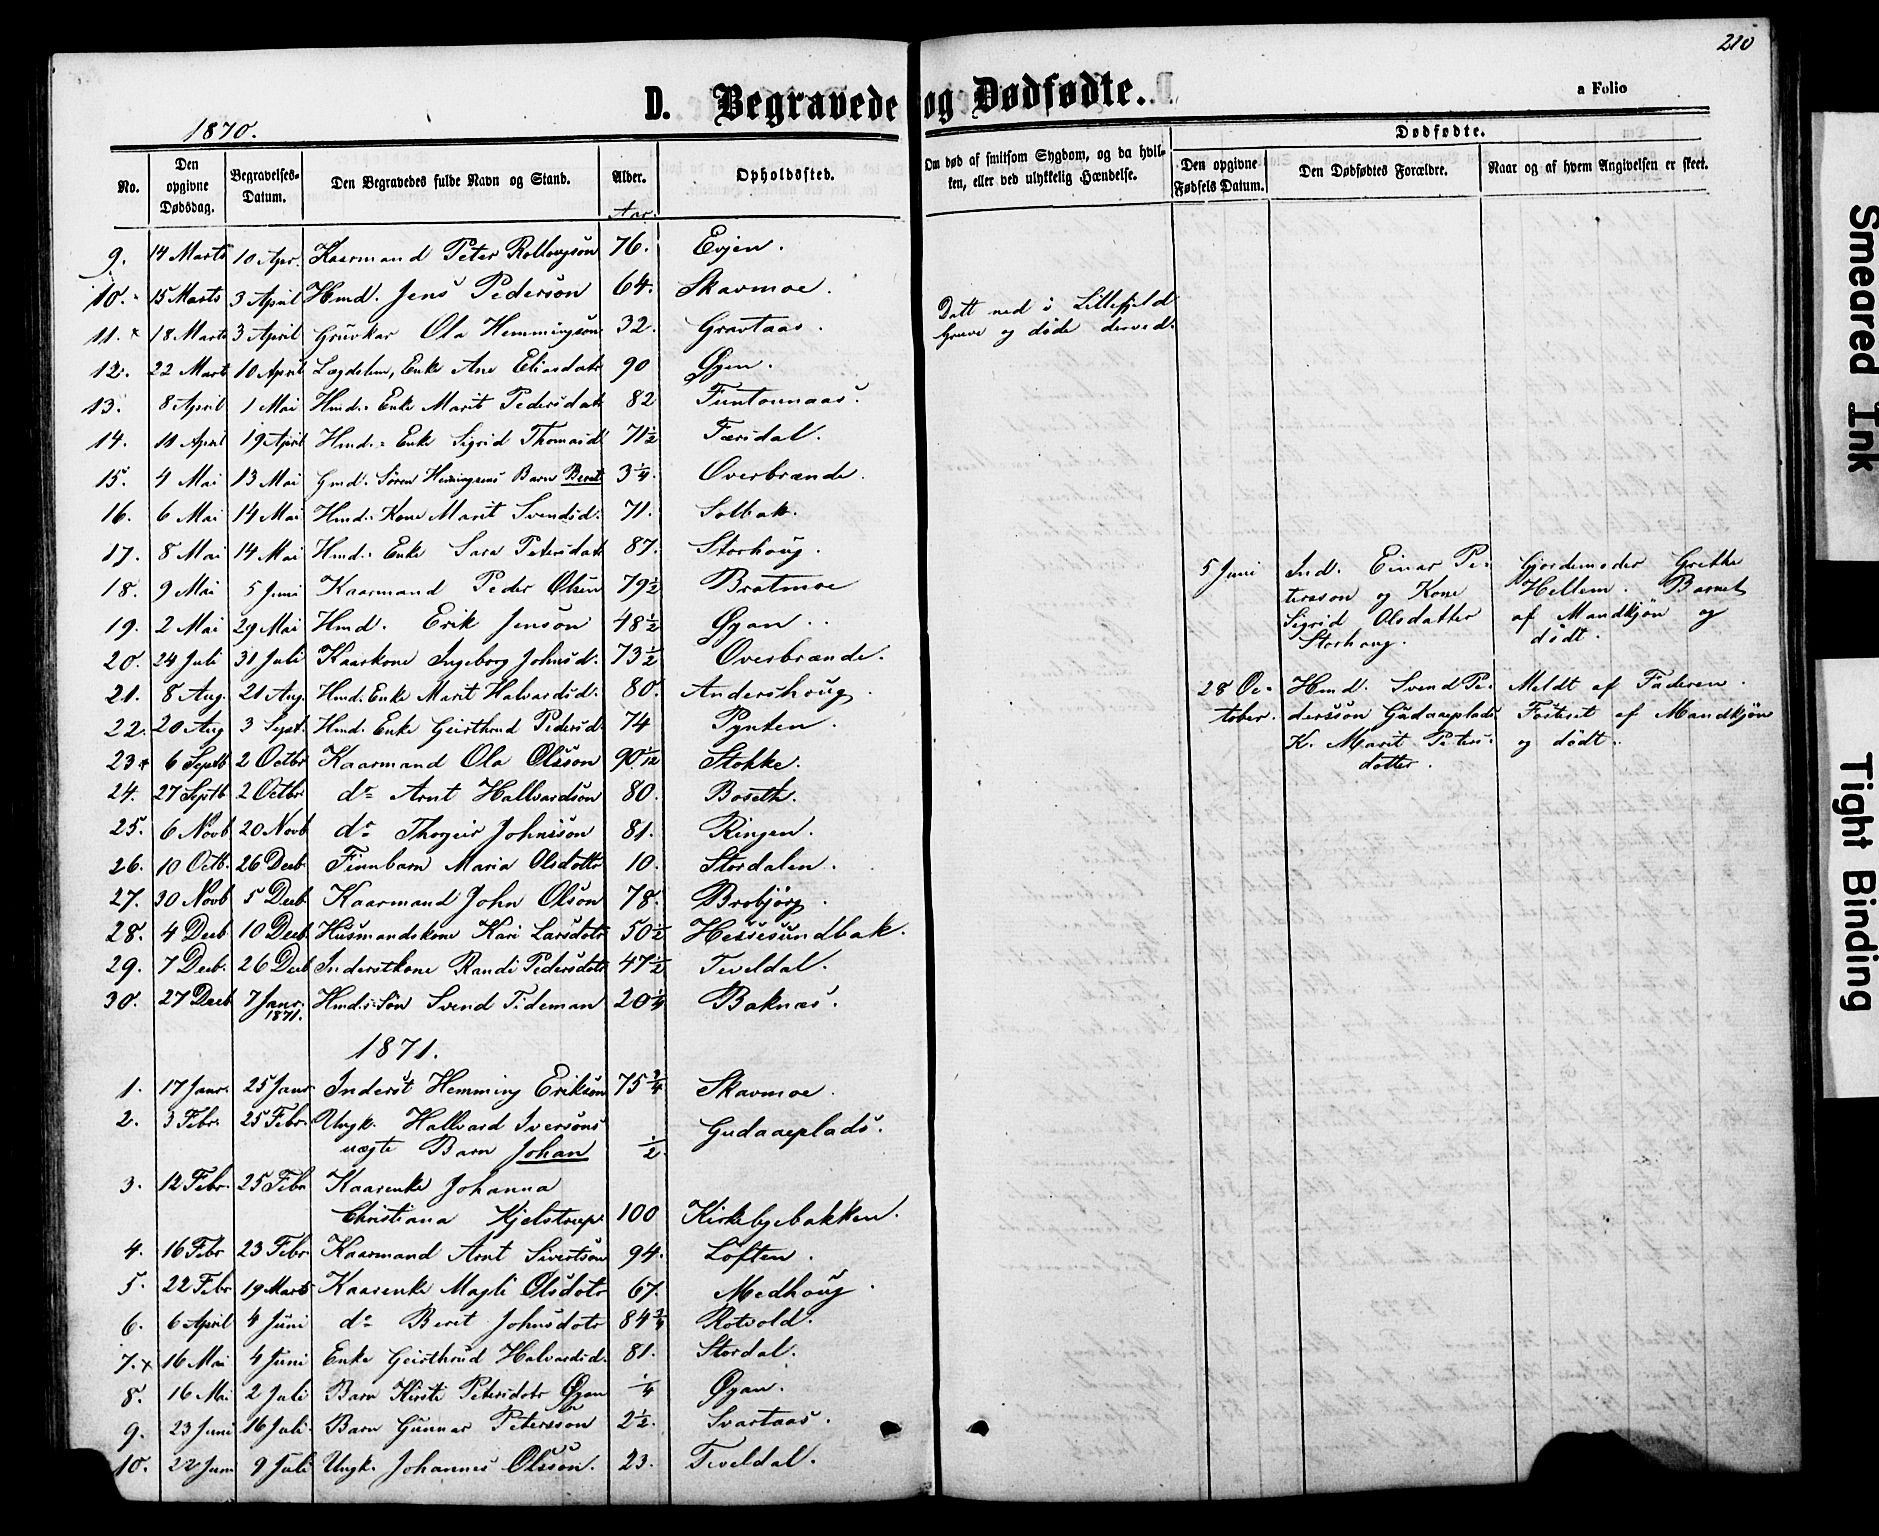 210
D. Begravede og Dødfødte.
a Folio
1870.
No.
Den opgivne Dødsdag.
Begravelses-Datum.
Den Begravedes fulde Navn og Stand.
Alder.
Opholdssted.
Om død af smitsom Sygdom, og da hvilken, eller ved ulykkelig Hændelse.
Dødfødte.
Den opgivne Fødsels Datum.
Den Dødfødtes Forældre.
Naar og af hvem Angivelsen er skeet.
Aar.
9. 14 Marts 10 Apr. Kaarmand Peter 76. Evjen.
10. 15 Marts 3 April Hmd. Jens Pederson 64. Skavmoe.
11. x 18 Marts 3 April Gruvkar Ola Hemmingson 32. Gravtaas. Datt ned i Lillefjeld
Gruve og døde derved.
12. 22 Marts 10 April Lægdslem, Enke Ane Eliasdatr 90 Øyen.
13. 8 April 1 Mai Hmd. Enke Marit Pedersdatr 82 Funtaunaas.
14. 11 April 19 April Hmd. Enke Sigrid Thomasd. 71 1/2 Færsdal.
15. 4 Mai 13 Mai Gmd. Søren Hemmingsens Barn Beret 3 1/4. Overbrænde.
16. 6 Mai 14 Mai Hmd. Kone Marit Svendsd. 71. Solbak.
17. 8 Mai 14 Mai Hmd. Enke Sara Petersdatr 87. Storhoug.
18. 9 Mai 5 Juni Kaarmand Peder Olsen 79 1/2 Bratmoe
19. 2 Mai 29 Mai Hmd. Erik Jenson 48 1/2 Øyan.
20. 24 Juli 31 Juli Kaarkone Ingeborg Johnsd. 73 1/2 Overbrænde.
21. 8 Aug. 21 Aug. Hmd. Enke Marit Halvardsd. 80. Andershoug.
22. 20 Aug 3 Sept. Hmd. Enke Geirthrud Pedersd. 74 Pynten.
23 x 6 Septb 2 Octbr Kaarmand Ola Olsson 90 1/12 Stokke.
24. 27 Septb 2 Octbr. do Arnt Hallvardson 80. Boseth.
25. 6 Novb 20 Novb do Thorgeir Johnsson 81. Ringen.
26. 10 Octb. 26 Decb. Finnbarn Maria Olsdottr 10. Stordalen.
27. 30 Novb 5 Decb Kaarmand John Olson 78. Brobjörg.
28. 4 Decb 10 Decb Husmandskone Kari Larsdotr 50 1/2 Hessesundbak.
29. 7 Decb. 26 Decb Inderstkone Randi Pedersdotr 47 1/2 Teveldal.
30. 27 Decb 7 Janr. 1871. Hmds. Søn Svend Tideman 20 1/4 Baknæs.
5 Juni Ind. Einar Pe-
terson og Kone
Sigrid Olsdatter
Storhaug.
Gjordemoder Grethe
Hellem. Barnet
af Mandkjön og
dödt.
28 Oc-
tober.
Hmd. Svend Pe-
dersson Gudaaeplads
K. Marit Peters-
datter.
Meldt af Faderen.
Fosteret af Mandkjön
og dödt.
1871.
1. 17 Janr. 25 Janr Inderst Hemming Erikson 75 3/4 Skavmoe.
2. 3 Febr. 25 Febr. Ungk. Hallvard Iversøns
uægte Barn Johan 1/2 Gudaaeplads.
3. 12 Febr. 25 Febr Kaarenke Johanna
Christiana Kjelstrup 100 Kirkebyebakken.
4. 16 Febr 23 Febr Kaarmand Arnt Sivertson 94. Loften.
5. 22 Febr 19 Marts Kaarenke Magli Olsdotr 67. Medhoug.
6. 6 April 4 Juni do Berit Johnsdotr 84 3/4 Rotvold.
7. x 16 Mai 4 Juni Enke Geirthrud Halvardsd. 81. Stordal.
8. 16 Mai 2 Juli Barn Kirsti Petersdotr Øyan 1/4 Øyan.
9. 23 Juni 16 Juli. Barn Gunnar Petersson 2 1/2. Svartaas.
10. 22 Juni 9 Juli Ungk. Johannes Olsson. 23. Teveldal.
Smeared Ink
Tight Binding